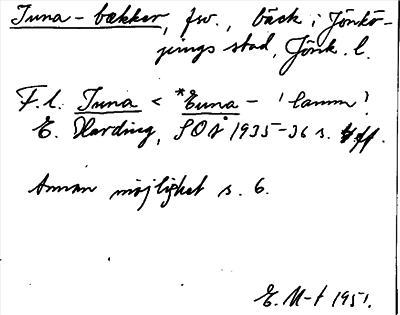 Juna-bækker, fsv., bäck i Jönkö-
pings stad, Jönk. l.
F.l. Juna < *Euna- 'lamm'?
E. Harding, SOÅ 1935-36 s. ff.
Annan möjlighet s. 6.
E. M-t 1951.